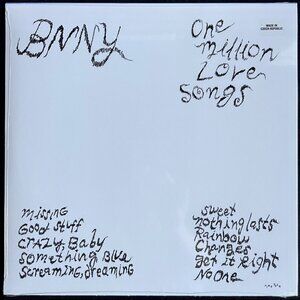 BNNY
One
million
Love
Songs
MADE IN
CZECH REPUBLIC
missing
Good stuff
CRAZY, Baby
Something Blue
Screaming, dreaming
Sweet
nothing lasts
Rainbow
Changes
get it Right
No One